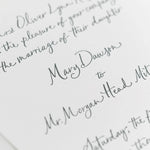 Oliver Lynn
the pleasure of your company
the marriage of their daughter
Mary Dawson
to
Mr. Morgan Head
Saturday, the